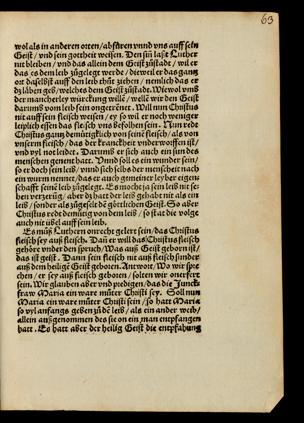 63
wol als in anderen orten/ abfüren vnnd vns auff sein
Geist/ vnd sein gottheit weisen. Den sūn laßt Luther
nit bleiben/ vnd das allein dem Geist zůstadt/ wil er
das es dem leib zůgelegt werde/ dieweil er das gantz
ort daselbst auff den leib thůt ziehen/ nemlich das er
dz läben geb/welches dem Geist zůstadt. Wie wol vmb
der mancherley würckung willē/ welle wir den Geist
darumb vom leib sein ongetrēnet. Wil nun Christus
nit auff sein fleisch weisen/ ey so wil er noch weniger
leiplich essen das fleisch vns befolhen sein. Nun rede
Christus gantz demůtigklich von seinē fleisch/ als von
vnserm fleisch/ das der kranckheit vnderworffen ist/
vnd vyl not leidet. Darumb er sich auch ein sun des
menschen genent hatt. Vnnd soll es ein wunder sein/
so er doch sein leib/ vnnd sich selbs der menscheit nach
ein wurm nennet/ das er auch gmeiner leyber eigen
schafft seinē leib zůgelegt. Es mocht ja sein leib nit se
hen verzerūg/ aber dz hatt der leib gehabt nit als ein
leib/ sonder als zůgeselt dē götrlichen Geist. So aber
Christus redt demůtig von dem leib/ so stat die volge
auch nit übel auff sein leib.
Es můß Luthern onrecht gelert sein/das Christus
fleisch sey auß fleisch. Dañ er will das Christus fleisch
gehöre vnder den spruch/Was auß Geist geborn ist/
das ist geist. Dann sein fleisch nit auß fleisch sunder
auß dem heiligē Geist geboren. Antwort. Wo wir spre
chen/ er sey auß fleisch geboren/ solten wir onertert
sein. Wir glauben aber vnd predigen/das die Junck
fraw Maria ein ware můter Christi sey. Soll nun
Maria ein ware můter Christi sein/ so hatt Maria
so vyl anfangs geben zů dē leib/ als ein ander weib/
allein außgenommen des sie on ein man entpfangen
hatt. Es hatt aber der heilig Geist die entpfahung